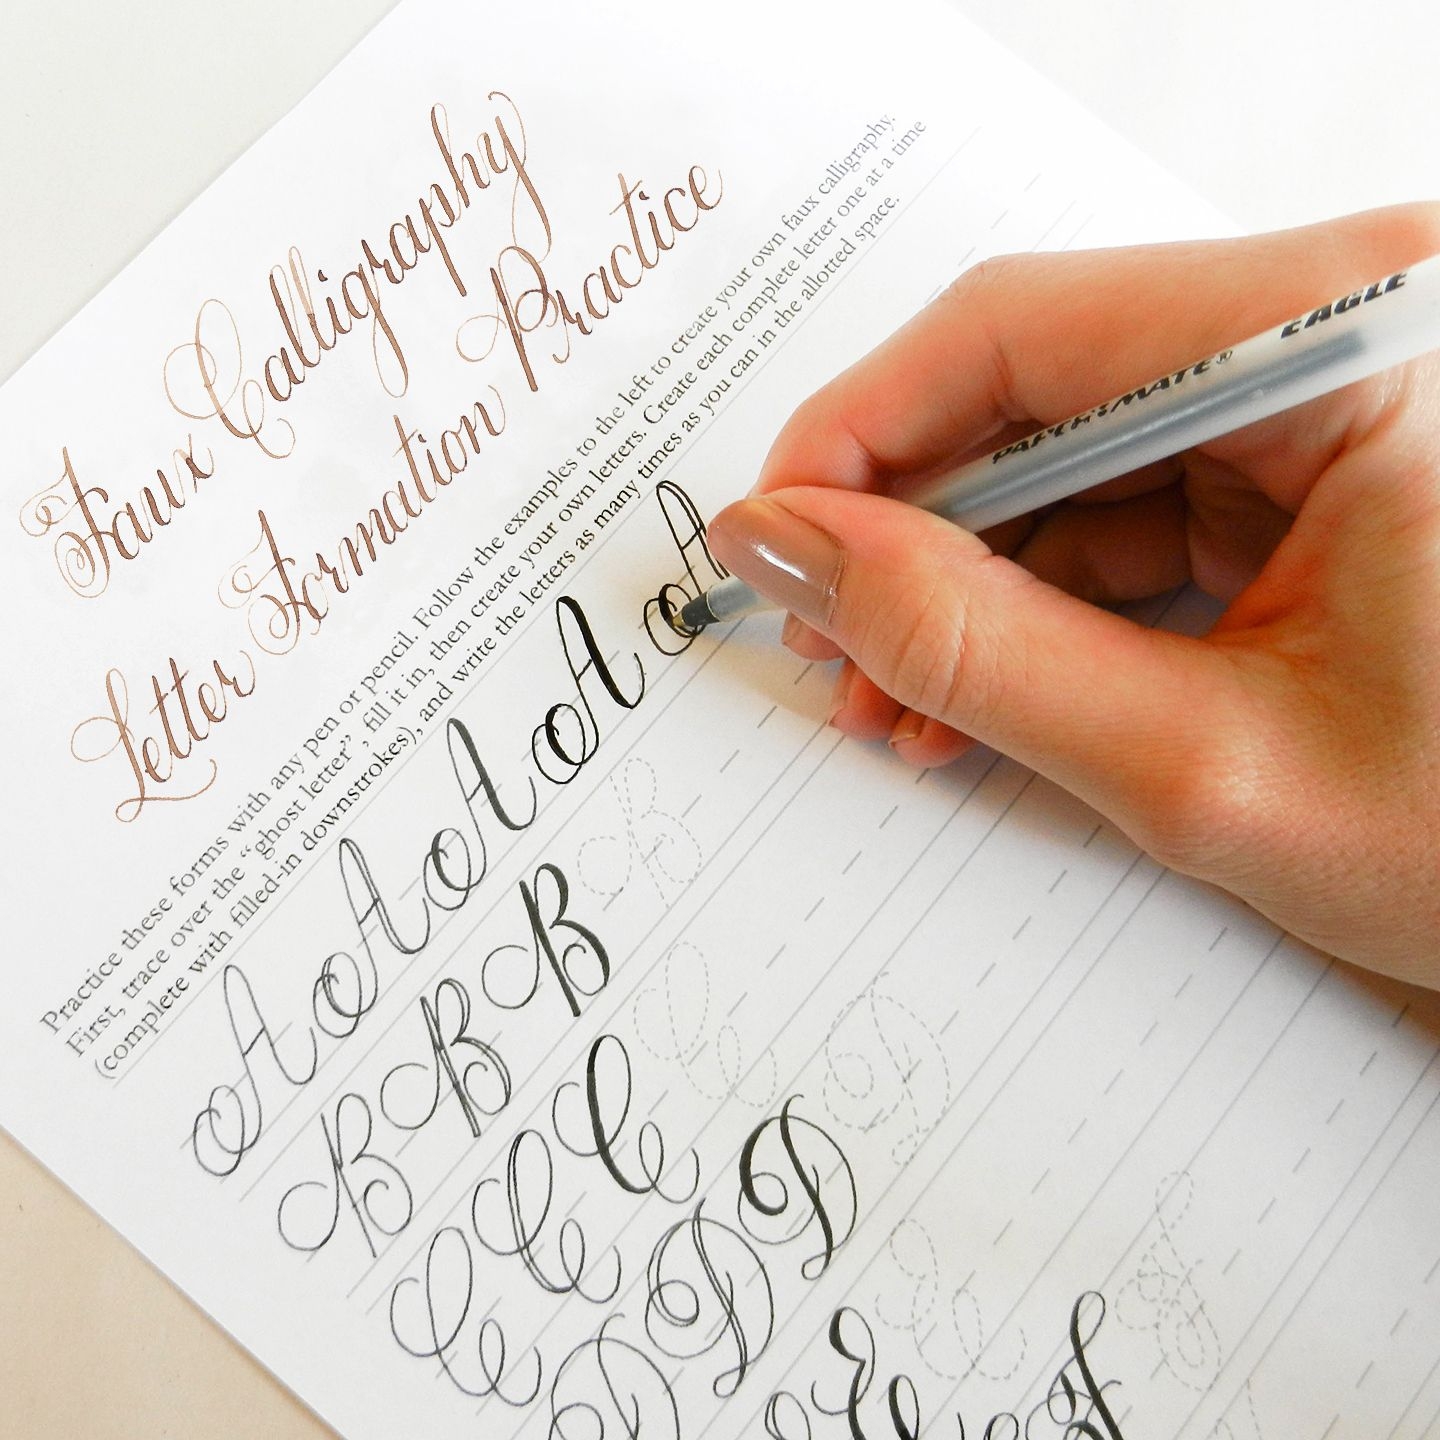 Faux Calligraphy
Letter Formation Practice
Practice these forms with any pen or pencil. Follow the examples to the left to create your own faux calligraphy.
First, trace over the “ghost letter”, fill it in, then create your own letters. Create each complete letter one at a time
(complete with filled-in downstrokes), and write the letters as many times as you can in the allotted space.
A A A A A
B B B B
C C C C
D D D D
E E E
F F F
PAPER:MATE® EAGLE